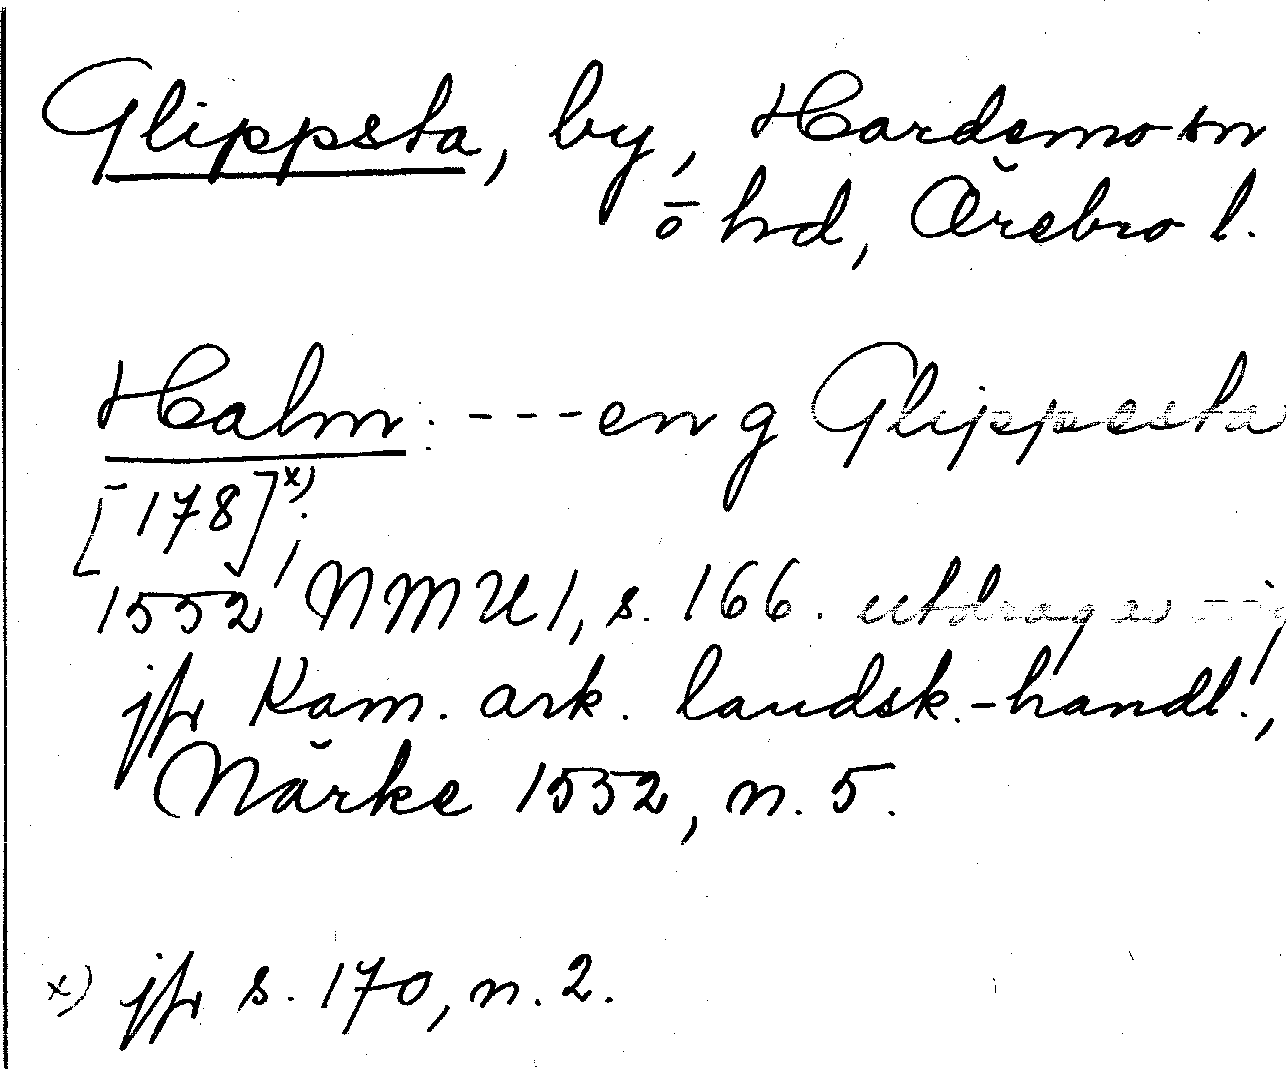 Glippsta, by, Hardemo sn
o hd, Örebro l.
Halm: ---en g Glippesta
[178]x);
1552 NMU 1, s. 166. utdrag av --
jfr Kam. ark. landsk.-handl.,
Närke 1552, n. 5.
x) jfr s. 170, n. 2.